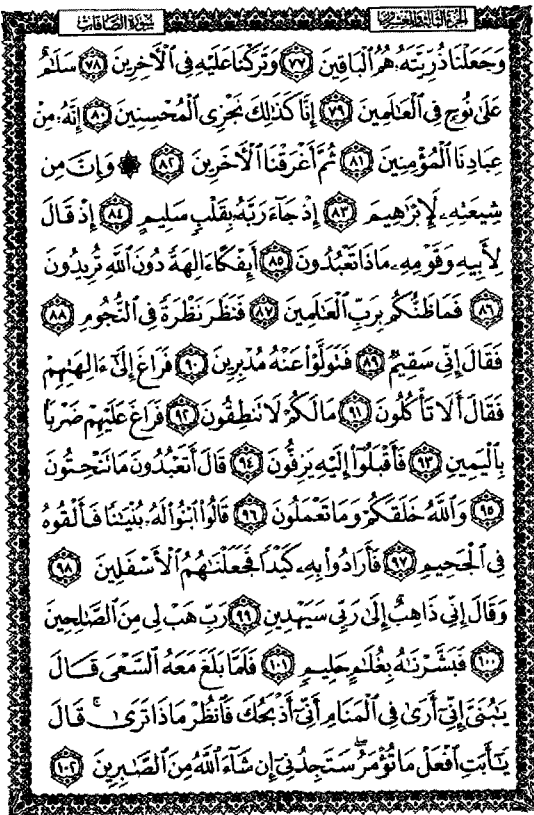 سورة الصافات الجزء الثالث والعشرون
وَجَعَلْنَا ذُرِّيَّتَهُۥ هُمُ ٱلْبَاقِينَ ﴿٧٧﴾ وَتَرَكْنَا عَلَيْهِ فِى ٱلْءَاخِرِينَ ﴿٧٨﴾ سَلَٰمٌ
عَلَىٰ نُوحٍ فِى ٱلْعَٰلَمِينَ ﴿٧٩﴾ إِنَّا كَذَٰلِكَ نَجْزِى ٱلْمُحْسِنِينَ ﴿٨٠﴾ إِنَّهُۥ مِنْ
عِبَادِنَا ٱلْمُؤْمِنِينَ ﴿٨١﴾ ثُمَّ أَغْرَقْنَا ٱلْءَاخَرِينَ ﴿٨٢﴾ ۞ وَإِنَّ مِن
شِيعَتِهِۦ لَإِبْرَٰهِيمَ ﴿٨٣﴾ إِذْ جَآءَ رَبَّهُۥ بِقَلْبٍ سَلِيمٍ ﴿٨٤﴾ إِذْ قَالَ
لِأَبِيهِ وَقَوْمِهِۦ مَاذَا تَعْبُدُونَ ﴿٨٥﴾ أَئِفْكًا ءَالِهَةً دُونَ ٱللَّهِ تُرِيدُونَ
﴿٨٦﴾ فَمَا ظَنُّكُم بِرَبِّ ٱلْعَٰلَمِينَ ﴿٨٧﴾ فَنَظَرَ نَظْرَةً فِى ٱلنُّجُومِ ﴿٨٨﴾
فَقَالَ إِنِّى سَقِيمٌ ﴿٨٩﴾ فَتَوَلَّوْا۟ عَنْهُ مُدْبِرِينَ ﴿٩٠﴾ فَرَاغَ إِلَىٰٓ ءَالِهَتِهِمْ
فَقَالَ أَلَا تَأْكُلُونَ ﴿٩١﴾ مَا لَكُمْ لَا تَنطِقُونَ ﴿٩٢﴾ فَرَاغَ عَلَيْهِمْ ضَرْبًۢا
بِٱلْيَمِينِ ﴿٩٣﴾ فَأَقْبَلُوٓا۟ إِلَيْهِ يَزِفُّونَ ﴿٩٤﴾ قَالَ أَتَعْبُدُونَ مَا تَنْحِتُونَ
﴿٩٥﴾ وَٱللَّهُ خَلَقَكُمْ وَمَا تَعْمَلُونَ ﴿٩٦﴾ قَالُوا۟ ٱبْنُوا۟ لَهُۥ بُنْيَٰنًا فَأَلْقُوهُ
فِى ٱلْجَحِيمِ ﴿٩٧﴾ فَأَرَادُوا۟ بِهِۦ كَيْدًا فَجَعَلْنَٰهُمُ ٱلْأَسْفَلِينَ ﴿٩٨﴾
وَقَالَ إِنِّى ذَاهِبٌ إِلَىٰ رَبِّى سَيَهْدِينِ ﴿٩٩﴾ رَبِّ هَبْ لِى مِنَ ٱلصَّٰلِحِينَ
﴿١٠٠﴾ فَبَشَّرْنَٰهُ بِغُلَٰمٍ حَلِيمٍ ﴿١٠١﴾ فَلَمَّا بَلَغَ مَعَهُ ٱلسَّعْىَ قَالَ
يَٰبُنَىَّ إِنِّىٓ أَرَىٰ فِى ٱلْمَنَامِ أَنِّىٓ أَذْبَحُكَ فَٱنظُرْ مَاذَا تَرَىٰ ۚ قَالَ
يَٰٓأَبَتِ ٱفْعَلْ مَا تُؤْمَرُ ۖ سَتَجِدُنِىٓ إِن شَآءَ ٱللَّهُ مِنَ ٱلصَّٰبِرِينَ ﴿١٠٢﴾